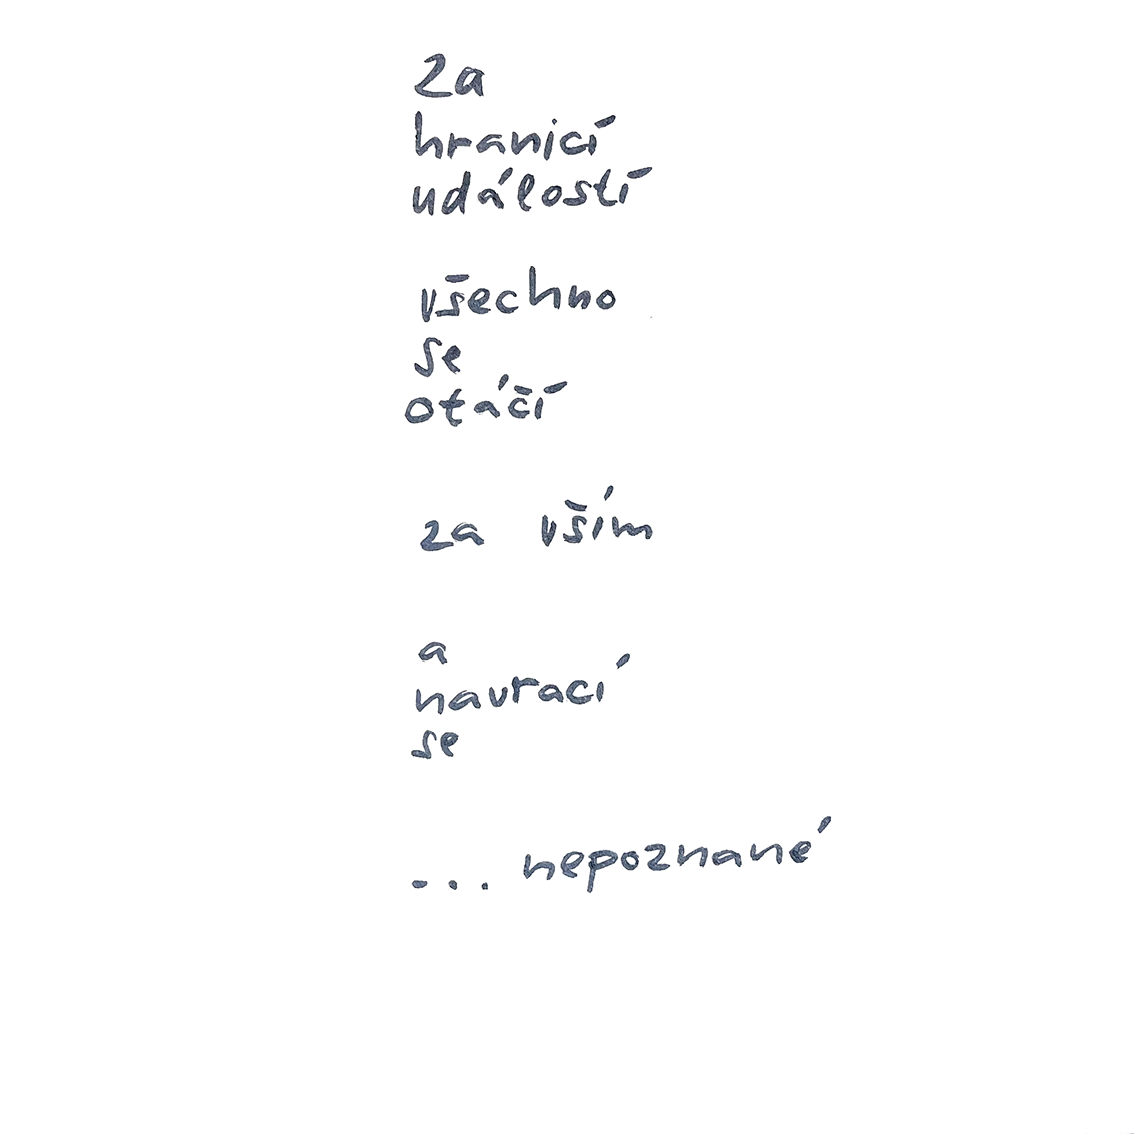 za
hranicí
událostí
všechno
se
otáčí
za vším
a
navrací
se
... nepoznané